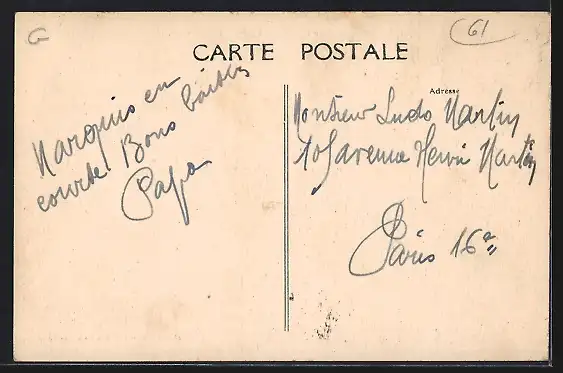 G
61
CARTE POSTALE
Adresse
Marquis en
courte! Bons baisers
Papa
Monsieur Ludo Martin
105 avenue Henri Martin
Paris 16e